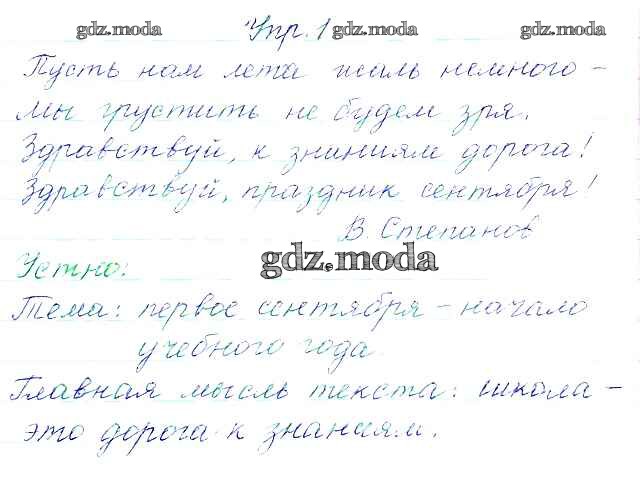 gdz.moda Упр. 1 gdz.moda gdz.moda
Пусть нам лета жаль немного –
Мы грустить не будем зря.
Здравствуй, к зниниям дорога!
Здравствуй, праздник сентября!
В. Степанов
Устно: gdz.moda
Тема: первое сентября – начало
учебного года.
Главная мысль текста: школа –
это дорога к знаниям.